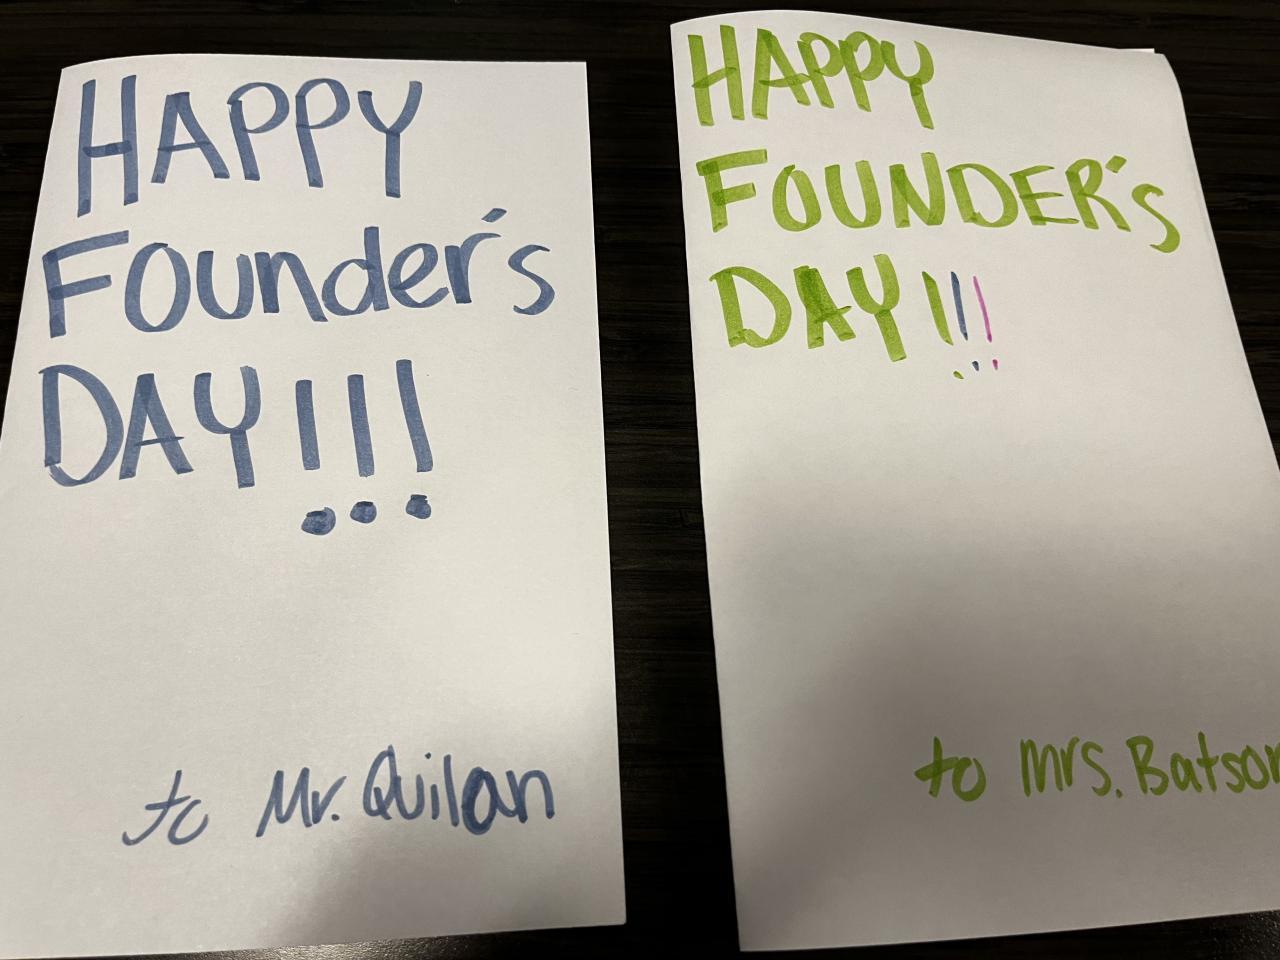 HAPPY
Founder's
DAY!!!
to Mr. Quilan
HAPPY
FOUNDER's
DAY!!!
to mrs. Batson